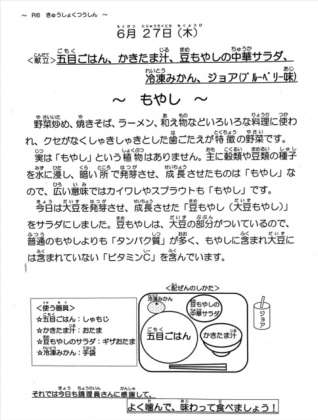 ～ R6 きゅうしょくつうしん ～
6月 27日(木)
<献立>五目ごはん、かきたま汁、豆もやしの中華サラダ、
冷凍みかん、ジョア(ブルーベリー味)
～ もやし ～
野菜炒め、焼きそば、ラーメン、和え物などいろいろな料理に使わ
れ、クセがなくしゃきしゃきとした歯ごたえが特徴の野菜です。
実は「もやし」という植物はありません。主に穀類や豆類の種子
を水に浸し、暗い所で発芽させ、成長させたものは「もやし」な
ので、広い意味ではカイワレやスプラウトも「もやし」です。
今日は大豆を発芽させ、成長させた「豆もやし（大豆もやし）」
をサラダにしました。豆もやしは、大豆の部分がついているので、
普通のもやしよりも「タンパク質」が多く、もやしに含まれ大豆に
は含まれていない「ビタミンC」を含んでいます。
<使う器具>
☆五目ごはん：しゃもじ
☆かきたま汁：おたま
☆豆もやしのサラダ：ギザおたま
☆冷凍みかん：手袋
<配ぜんのしかた>
冷凍みかん
豆もやしの
中華サラダ
五目ごはん
かきたま汁
ジョア
それでは今日も調理員さんに感謝して、
よく噛んで、味わって食べましょう！